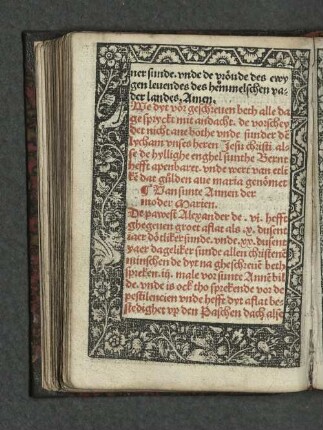 ner sunde. vnde de vröude des ewy
gen leuendes des hēmmelschen va-
der landes, Amen.
We dyt vör geschreuen beth alle da
ge spryckt mit andacht. de vorschey
det nicht ane bothe vnde sunder dē
lycham vnses heren Jesu christi. al-
se de hyllighe enghel sunthe Berne
hefft apenbaret. vnde wert van etli
kē dat gülden aue maria genömet
¶ Van sunte Annen der
moder Marien.
De pawest Alexander de .vi. hefft
ghegeuen groet aflat als .x. dusent
iaer dötliker sunde. vnde .xx. dusent
yaer dageliker sunde allen christenē
minschen de dyt na ghescreuē beth
spreken .iij. male vor sunte Annē bil
de. vnde is ock tho sprekende vor de
pestilencien vnde hefft dyt aflat bes
stedighet vp den Paschen dach alse